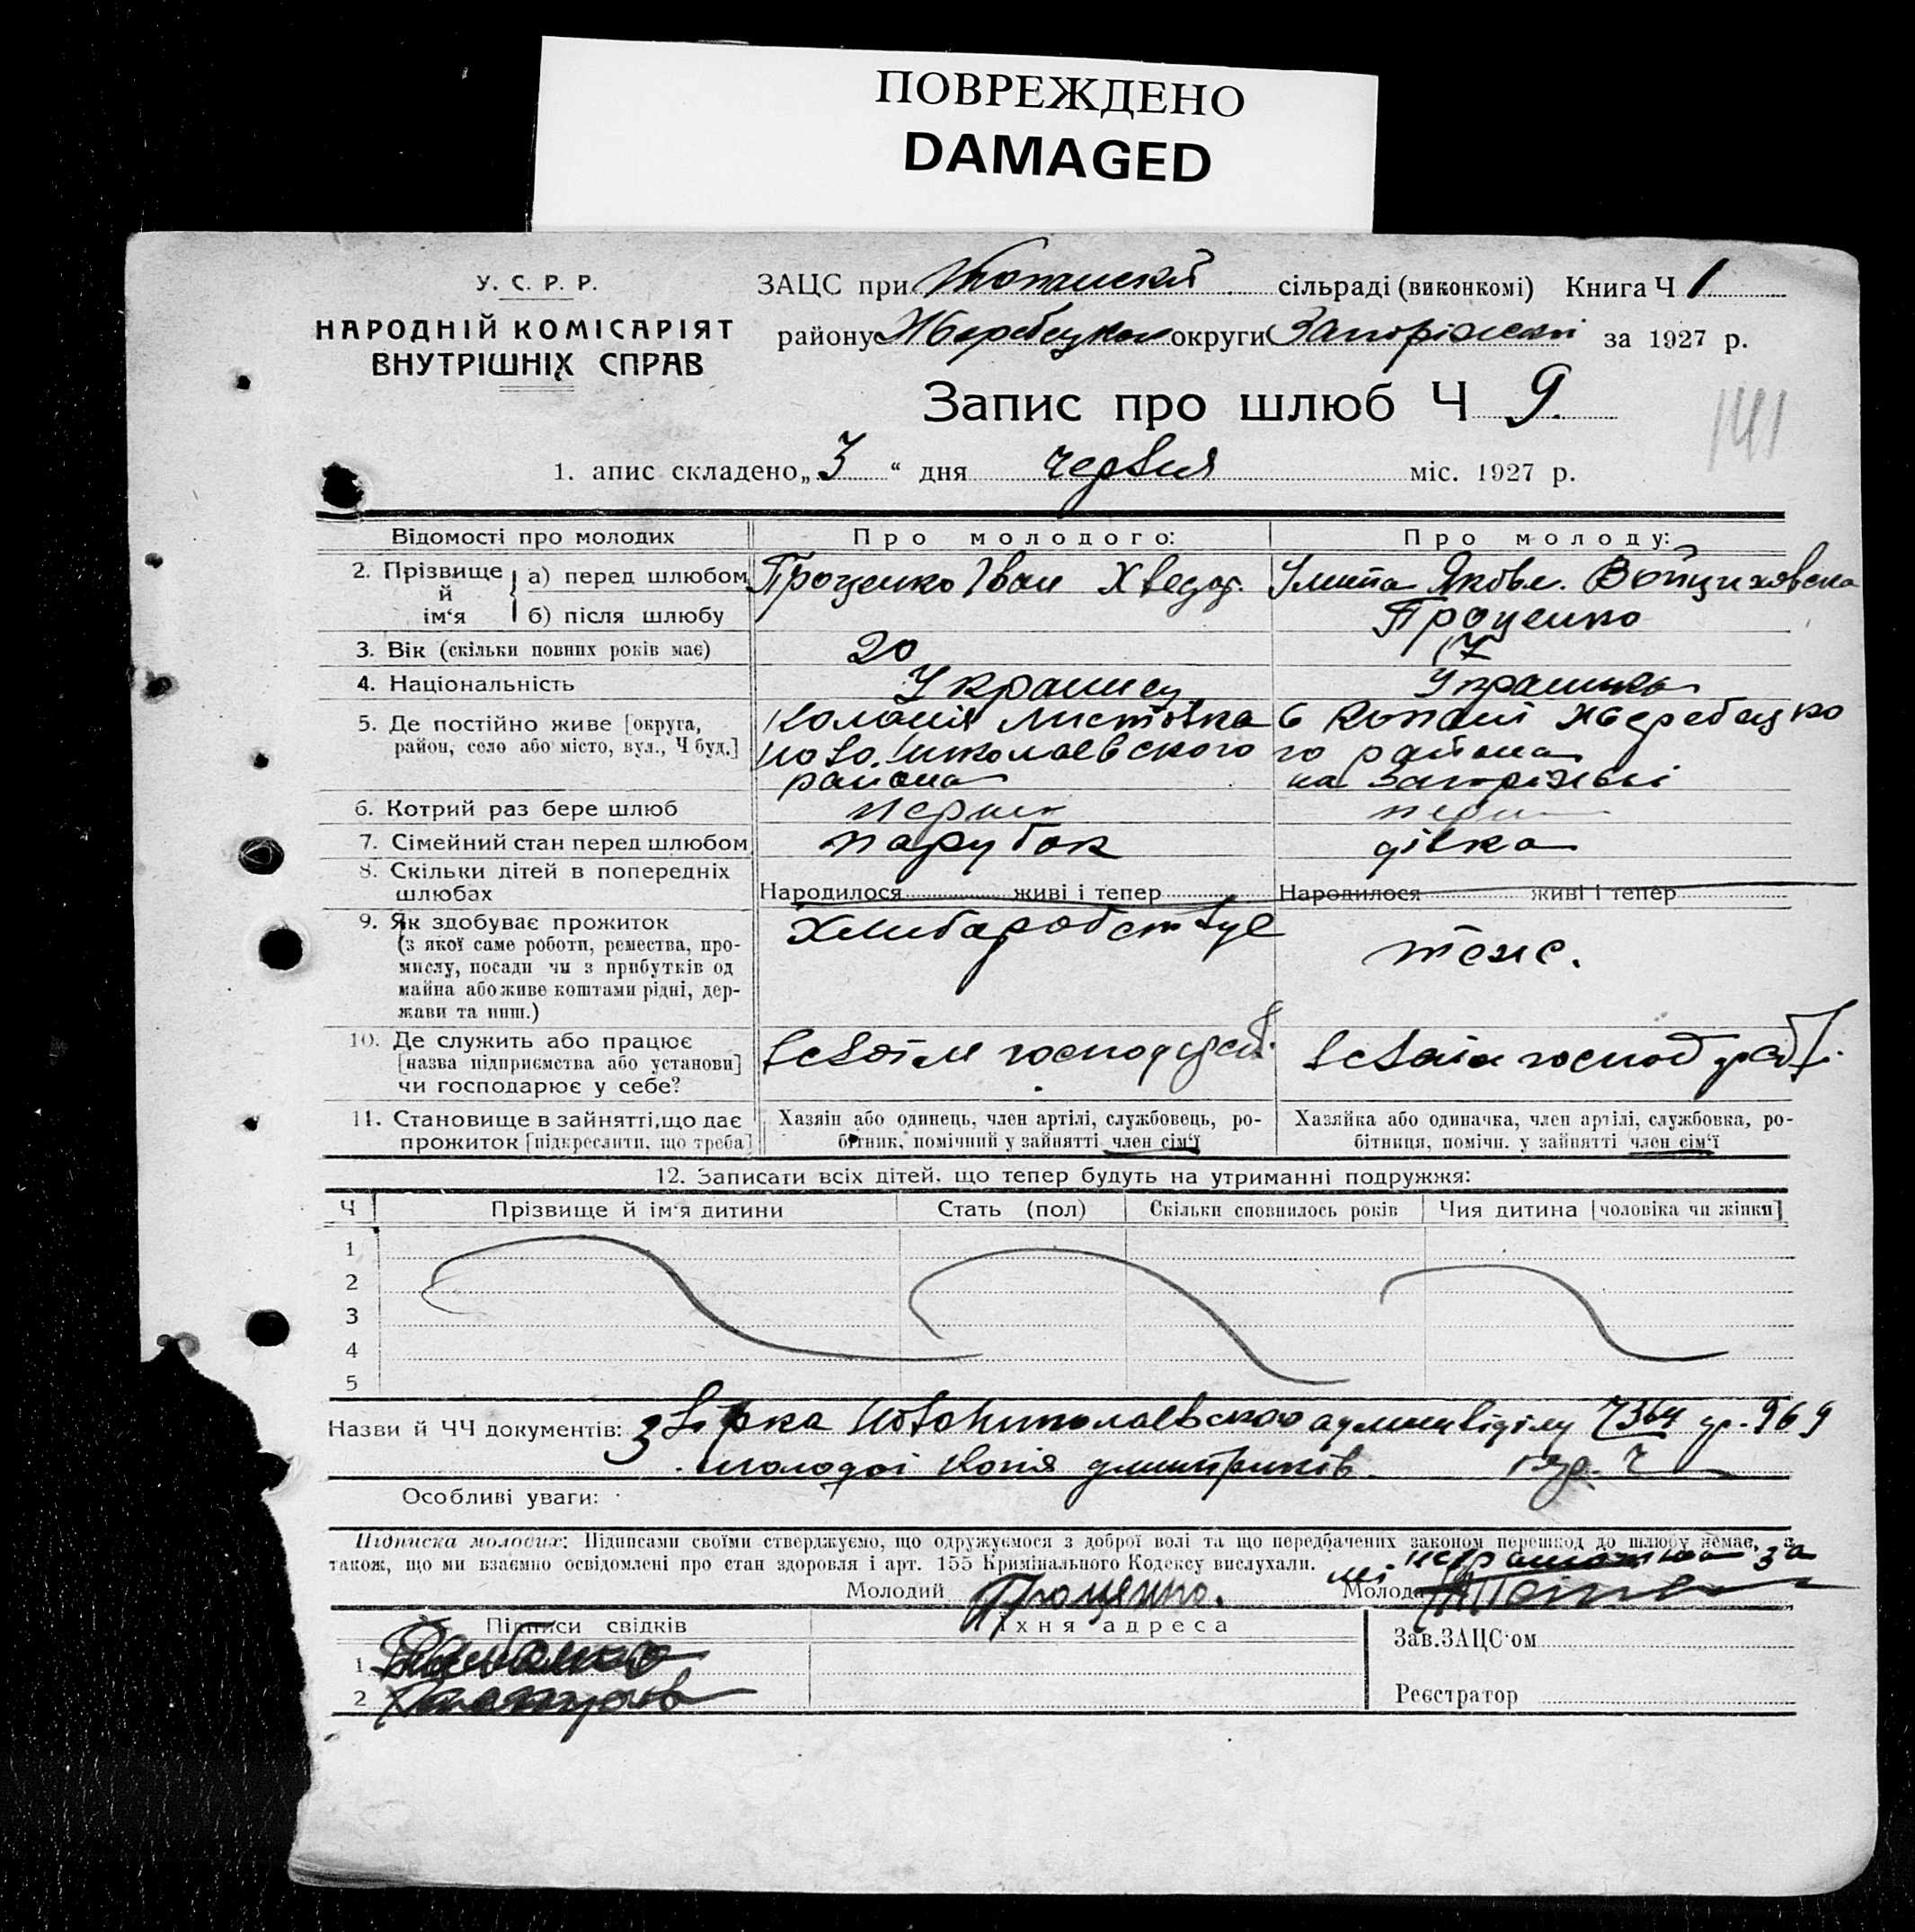 ПОВРЕЖДЕНО
DAMAGED
У. С. Р. Р.
НАРОДНІЙ КОМІСАРІЯТ
ВНУТРІШНІХ СПРАВ
ЗАЦС при сільраді (виконкомі) Книга Ч 1
району Жеребецком округи Запоріжскої за 1927 р.
Запис про шлюб Ч 9.
141
1. апис складено „3“ дня червня міс. 1927 р.
Відомості про молодих Про молодого: Про молоду:
2. Прізвище й ім‘я а) перед шлюбом Проценко Іван Хведор. Улита Яковл. Войциховска
б) після шлюбу Проценко
3. Вік (скільки повних років має) 20 17
4. Національність Украинец Украинка
5. Де постійно живе [округа, район, село або місто, вул., Ч буд.]
Колонія Листовка
ново.николаевского
района
в Копані Жеребецко
го района
на Запоріжьі
6. Котрий раз бере шлюб перший перш
7. Сімейний стан перед шлюбом парубок дівка
8. Скільки дітей в попередніх шлюбах Народилося живі і тепер Народилося живі і тепер
9. Як здобуває прожиток
(з якої саме роботи, ремества, про-
мислу, посади чи з прибутків од
майна або живе коштами рідні, дер-
жави та инш.)
хлибаробствує теже.
10. Де служить або працює
[назва підприємства або установи]
чи господарює у себе?
11. Становище в зайнятті, що дає
прожиток [підкреслити, що треба]
Хазяїн або одинець, член артілі, службовець, ро-
бітник, помічний у зайнятті член сім‘ї
Хазяйка або одиначка, член артілі, службовка, ро-
бітниця, помічн. у зайнятті член сім‘ї
12. Записати всіх дітей, що тепер будуть на утриманні подружжя:
Ч Прізвище й ім‘я дитини Стать (пол) Скільки сповнилось років Чия дитина [чоловіка чи жінки]
1
2
3
4
5
Назви й ЧЧ документів: Новониколаевского 7364 969
молодої копія
Особливі уваги:
Підписка молодих: Підписами своїми стверджуємо, що одружуємося з доброї волі та що передбачених законом перешкод до шлюбу немає, а
також, що ми взаємно освідомлені про стан здоровля і арт. 155 Кримінального Кодексу вислухали.
Молодий Проценко. Молода
Підписи свідків Їхня адреса
1
2
Зав. ЗАЦС‘ом
Реєстратор